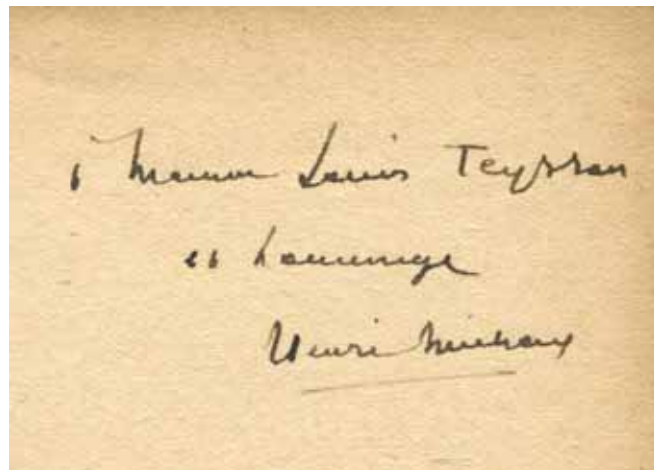 à Monsieur Louis Teyssou
en hommage
Henri Michaux